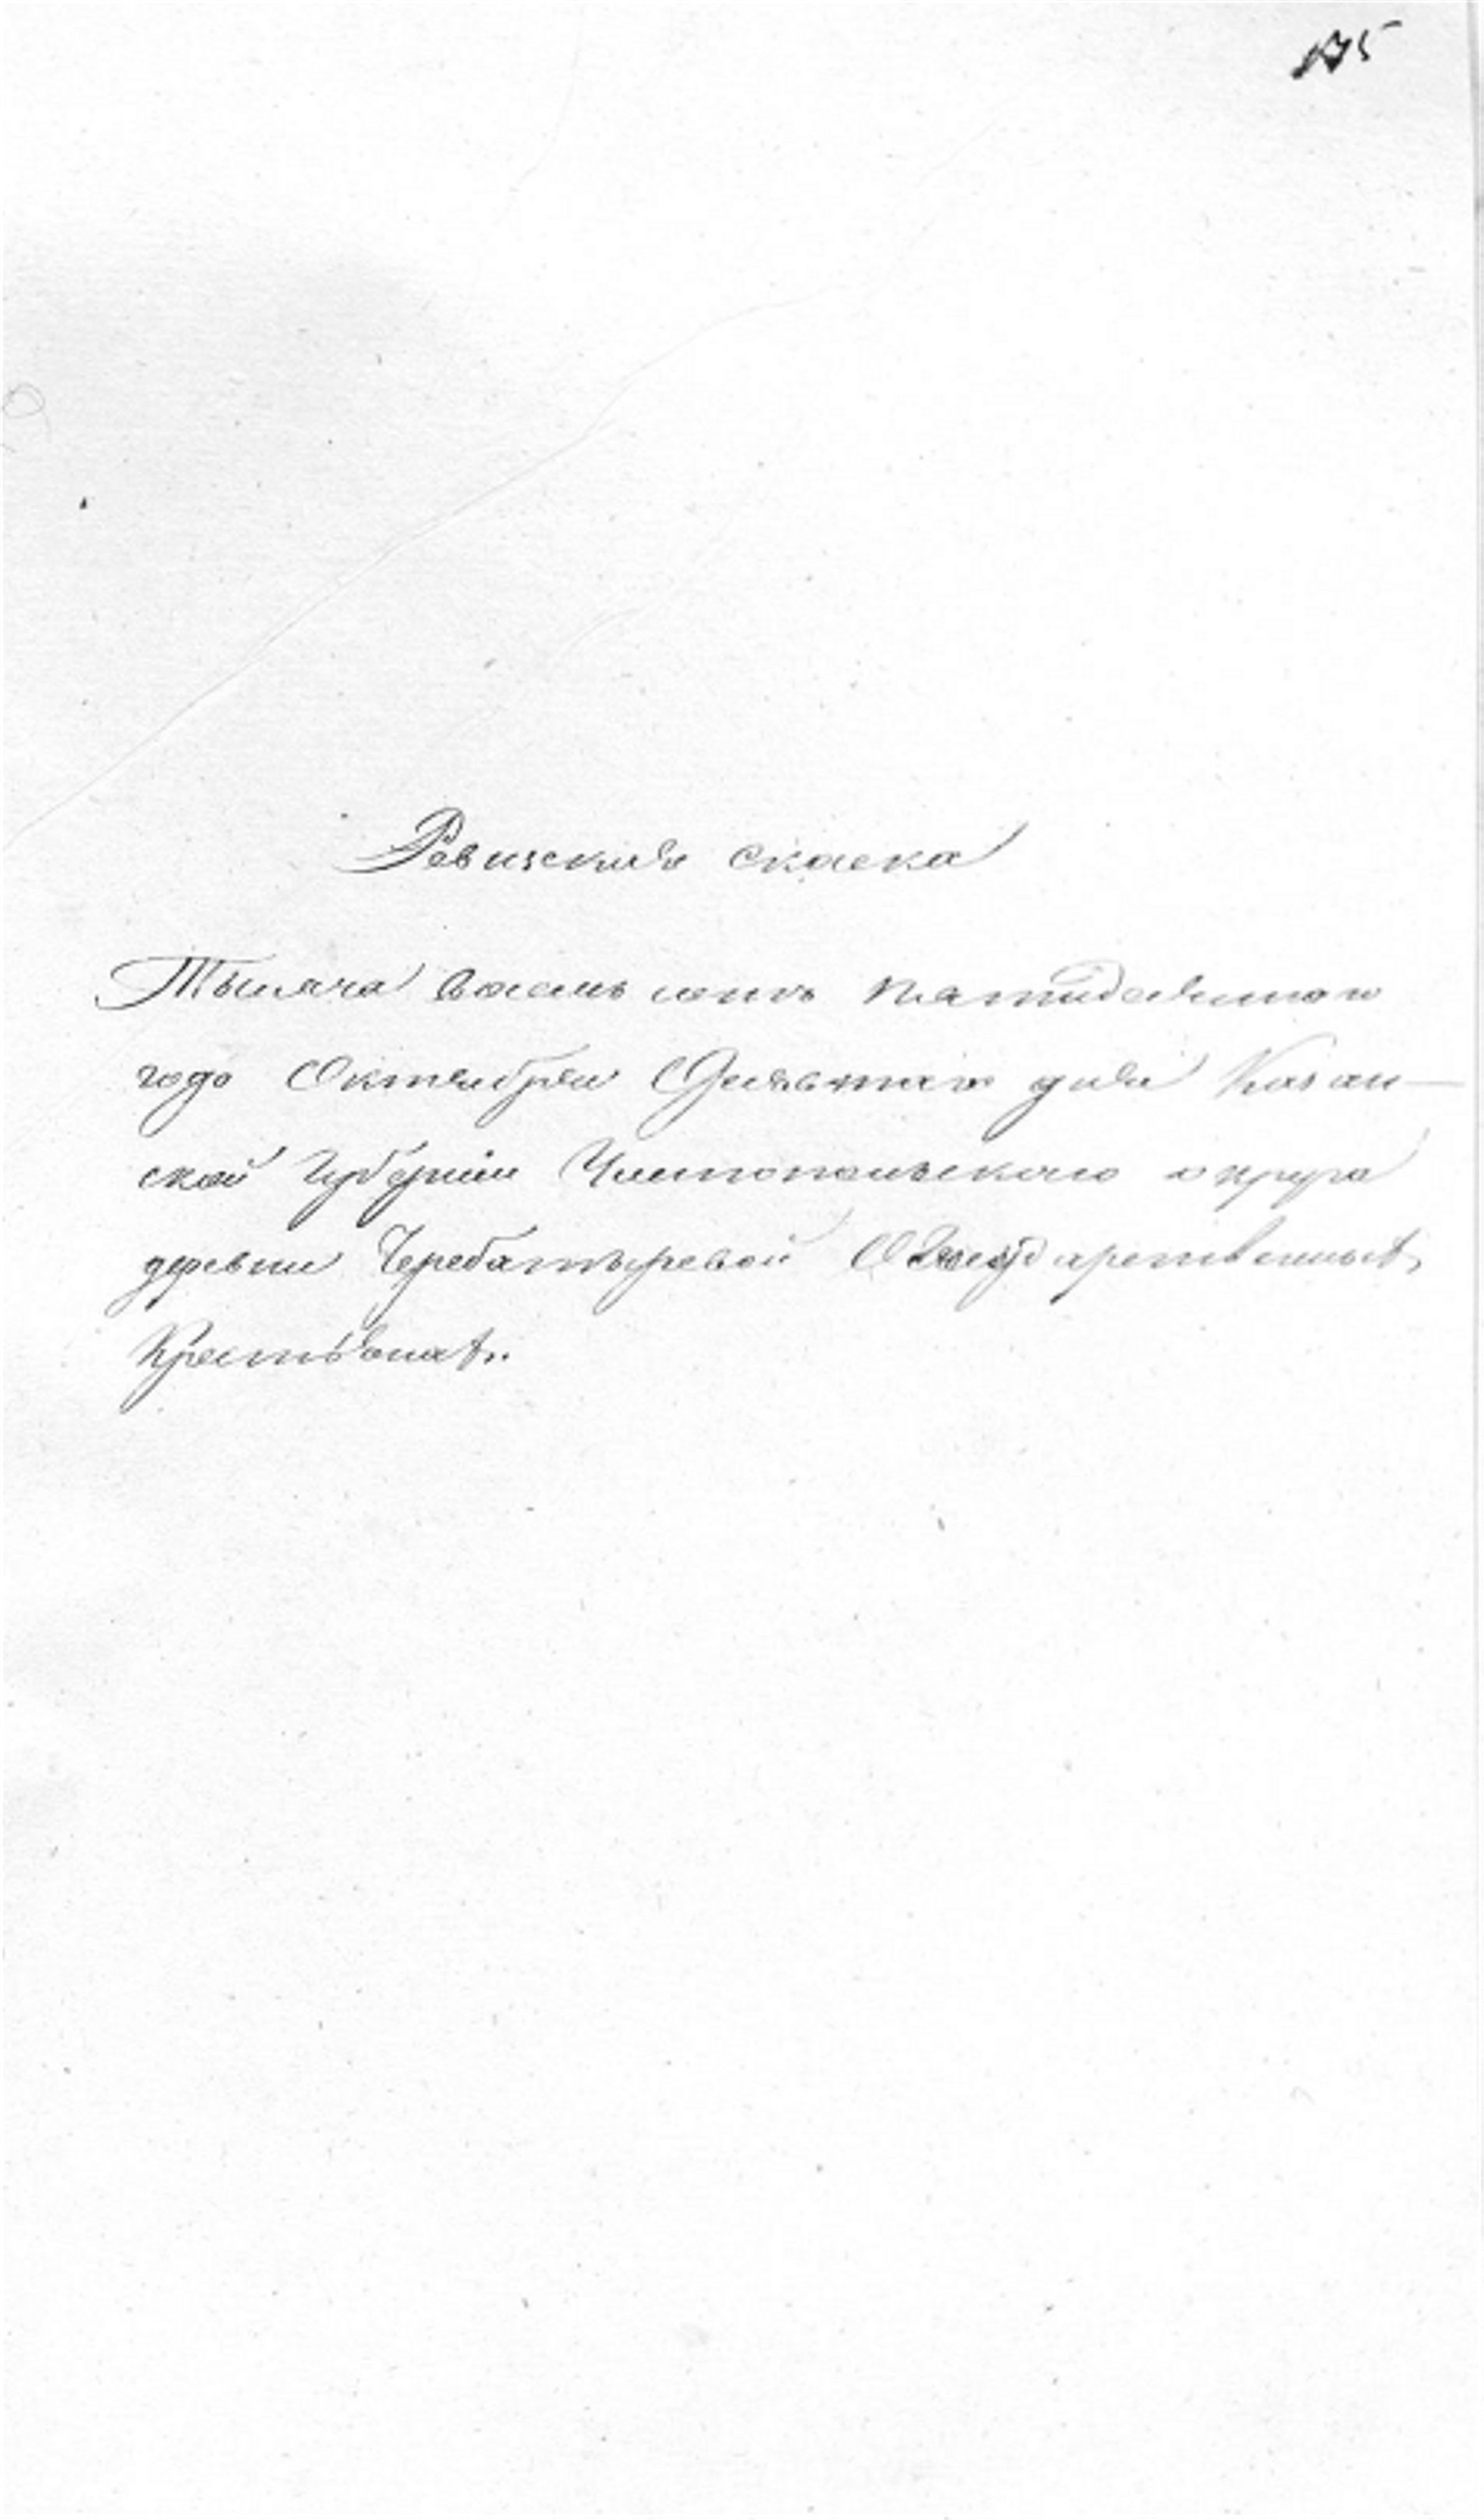 175
Ревизская скаска
Тысяча восемь сотъ пятидесятого
года Октября Девятаго дня Казан-
ской Губернии Чистопольскаго округа
деревни Черебатыревой О Государственныхъ
Крестьянахъ.